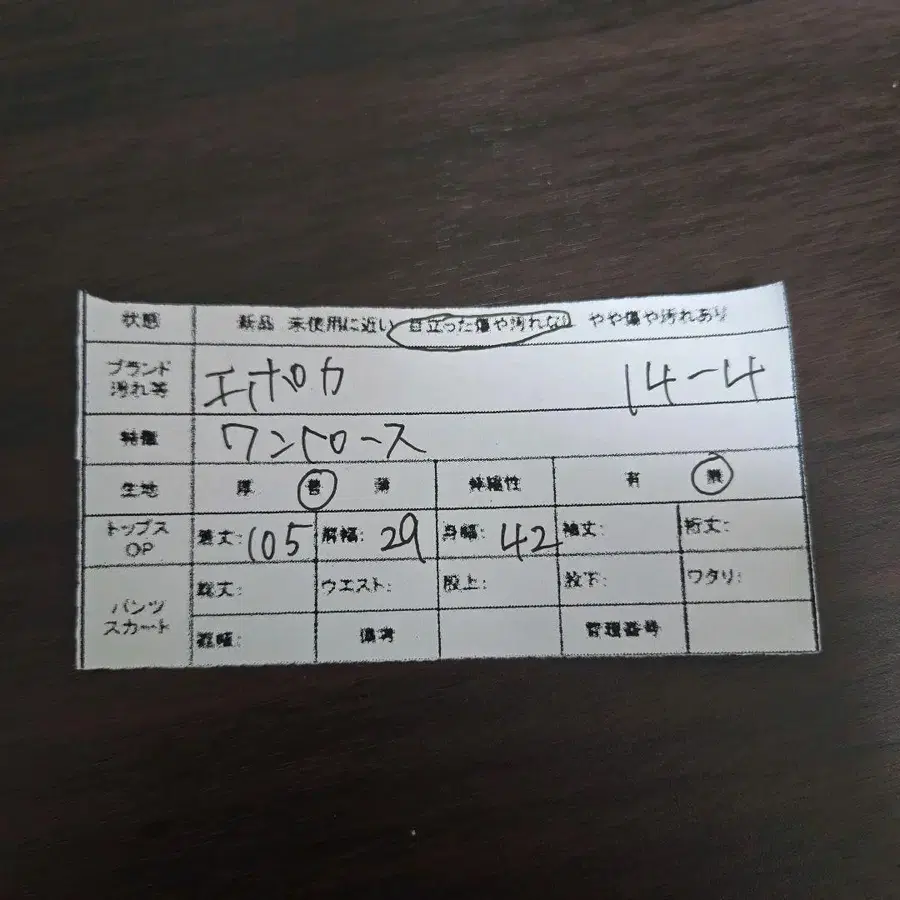 状態 新品 未使用に近い 目立った傷や汚れなし やや傷や汚れあり
ブランド 汚れ等 エポカ 14-4
特徴 ワンピース
生地 厚 普 薄 伸縮性 有 無
トップス OP 着丈:105 肩幅:29 身幅:42 袖丈: 裄丈:
パンツ スカート 総丈: ウエスト: 股上: 股下: ワタリ:
裾幅: 備考 管理番号